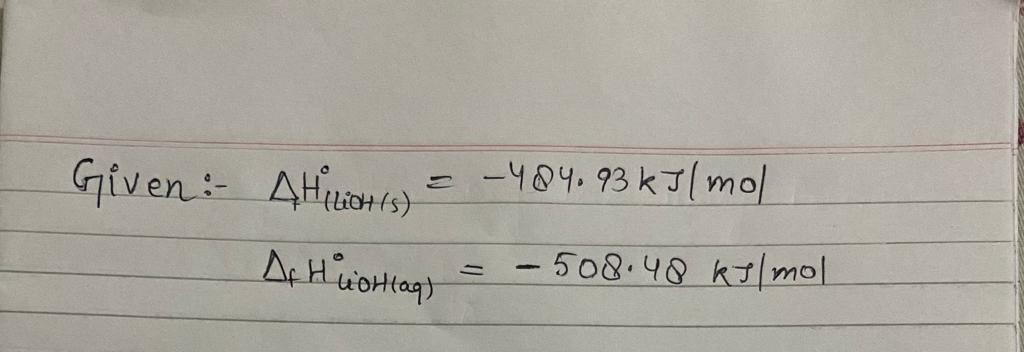 Given :- ΔfH°(LiOH(s) = -484.93 kJ/mol
ΔfH°LiOH(aq) = - 508.48 kJ/mol